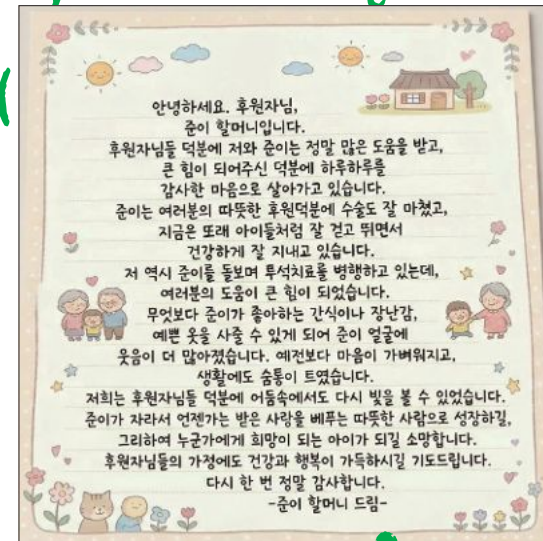 안녕하세요. 후원자님,
준이 할머니입니다.
후원자님들 덕분에 저와 준이는 정말 많은 도움을 받고,
큰 힘이 되어주신 덕분에 하루하루를
감사한 마음으로 살아가고 있습니다.
준이는 여러분의 따뜻한 후원덕분에 수술도 잘 마쳤고,
지금은 또래 아이들처럼 잘 걷고 뛰면서
건강하게 잘 지내고 있습니다.
저 역시 준이를 돌보며 투석치료를 병행하고 있는데,
여러분의 도움이 큰 힘이 되었습니다.
무엇보다 준이가 좋아하는 간식이나 장난감,
예쁜 옷을 사줄 수 있게 되어 준이 얼굴에
웃음이 더 많아졌습니다. 예전보다 마음이 가벼워지고,
생활에도 숨통이 트였습니다.
저희는 후원자님들 덕분에 어둠속에서도 다시 빛을 볼 수 있었습니다.
준이가 자라서 언젠가는 받은 사랑을 베푸는 따뜻한 사람으로 성장하길,
그리하여 누군가에게 희망이 되는 아이가 되길 소망합니다.
후원자님들의 가정에도 건강과 행복이 가득하시길 기도드립니다.
다시 한 번 정말 감사합니다.
-준이 할머니 드림-